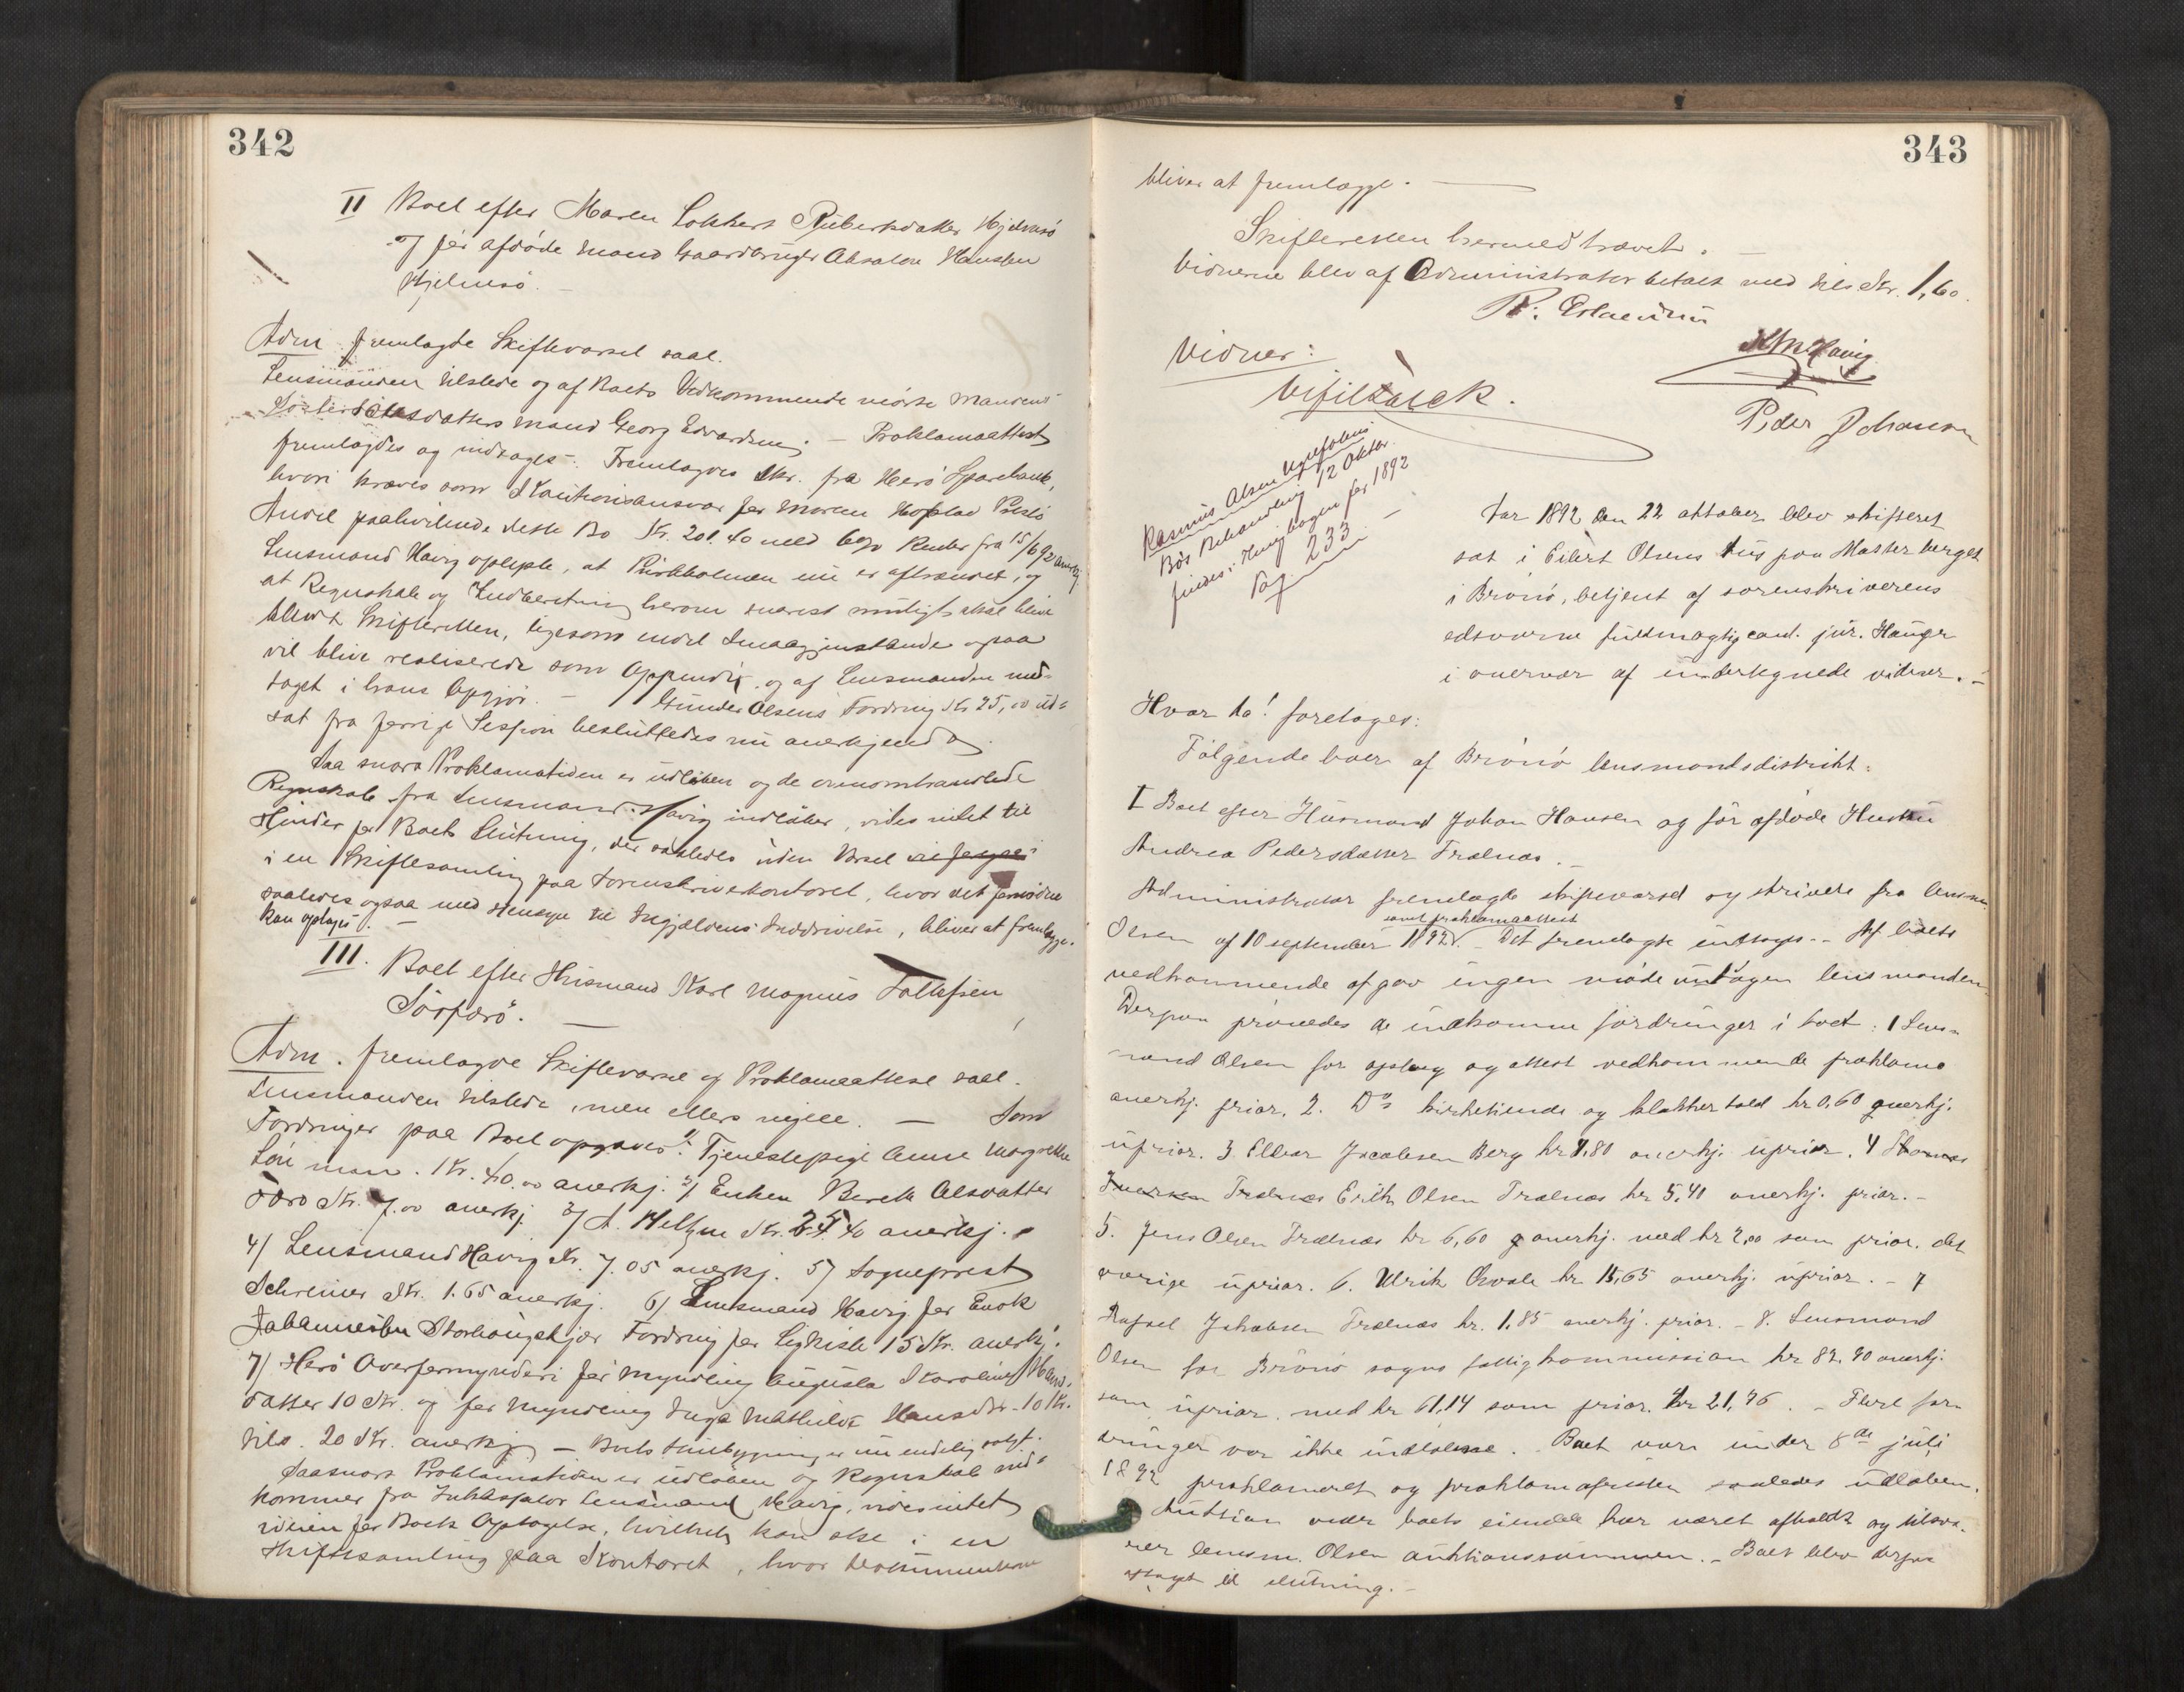 342
II Boet efter Maren Lokkers Rubertsdatter Hjelmsö
og før afdöde Mand Gaardbruger Absalon Hansen
Hjelmsö.
Adm. fremlagde Skiftevarsel saal.
Lensmanden tilstede og af Boets Vedkommende mödte Mandens
Mand Georg Edvardsen. - Proklamaattest
fremlagdes og indtages. Fremlagdes Skr. fra Herö Sparebank,
hvori kræves som Kautionsansvar for
Andel paahvilende dette Bo Kr. 201.40 med 6% Renter fra 15/6 92
Lensmand Havig oplyste, at nu er aftrædet, og
at Regnskab og Indberetning herom snarest muligt skal blive
Skifteretten, ligesom endel Smaagjenstande ogsaa
vil blive realiserede som Appendix og af Lensmanden med-
taget i hans Opgjör. - Gunder Olsens Fordring Kr 25,00 ud-
sat fra forrige Session besluttedes nu anerkjendt.
Saa snart Proklamatiden er udløben og de
Regnskab fra Lensmand Havig indløber, vides intet til
Hinder for Boets Slutning, der saaledes uden Varsel
i en Skiftesamling paa Sorenskriverkontoret, hvor det
saaledes ogsaa med Hensyn til Inddrivelse, bliver at fremlægge.
kan optages. -
III. Boet efter Husmand Karl Magnus Tollefsen
Sörfærö.
Adm. fremlagde Skiftevarsel og Proklamaattest saal.
Lensmanden tilstede, men ellers ingen. - Som
Fordringer paa Boet opgaves: 1/ Tjenestepige Anne Margrethe
Kr. 40.00 anerkj. 2/ Enken Berete Olsdatter
Færö Kr. 7.00 anerkj. 3/ A. Kr. 40 anerkj.
4/ Lensmand Havig Kr. 7.05 anerkj. 5/ Sogneprest
Schreiner Kr. 1.65 anerkj. 6/ Lensmand Havig for Enok
Johannessen Fordring for Ligkiste 15 Kr. anerkj.
7/ Herö Overformynderi for Myndling Augusta Karoline Hans-
datter 10 Kr. og for Myndling Inga Mathilde Hansdtr. 10 Kr.
tils. 20 Kr. anerkj. - Boets er nu endelig solgt.
Saasnart Proklamatiden er udløben og Regnskab ind-
kommer fra Inkassator Lensmand Havig, vides intet
iveien for Boets Optagelse, hvilket kan ske i en
Skiftesamling paa Kontoret, hvor Dokumenterne
343
bliver at fremlægge.
Skifteretten hermed hævet.
Vidnerne blev af Administrator betalt med tils. Kr. 1,60.
Vidner:
Havig
Peder Johansen
Rasmus Olsen
Bos Behandling 12 Oktbr.
findes i for 1892
Pag 233
Aar 1892 den 22 oktober blev skifteret
sat i Eilert Olsens hus paa Masterberget
i Brönö, betjent af sorenskriverens
edsvorne fuldmægtig cand. jur. Hauge
i overvær af undertegnede vidner. -
Hvor da! foretoges:
Fölgende boer af Brönö lensmandsdistrikt:
I Boet efter Husmand Johan Hansen og för afdöde Hustru
Andrea Pedersdatter Trælnæs.
Administrator fremlagde skiftevarsel og skrivelse fra lensm.
samt proklamaattest
Olsen af 10 september 1892. - Det fremlagte indtages. - Af boets
vedkommende afgav ingen möde undtagen lensmanden.
Derpaa prövedes de indkomne fordringer i boet: 1 Lens-
mand Olsen for opslag og attest vedkommende proklama
anerkj. prior. 2. Do kirketiende og klokkertold kr 0,60 anerkj.
uprior. 3 Jacobsen Berg kr 1,80 anerkj. uprior. 4 Thomas
Iversen Trælnæs Erik Olsen Trælnæs kr 5,40 anerkj. prior. -
5. Jens Olsen Trælnæs kr 6,60 anerkj. med kr 2,00 som prior. det
övrige uprior. 6. Ulrik kr 15,65 anerkj. uprior. - 7
Rafael Jakobsen Trælnæs kr. 1,85 anerkj. prior. - 8. Lensmand
Olsen for Brönö sogns fattigkommission kr 82,90 anerkj.
som uprior. med kr 61,14 som prior. kr 21,76. - Flere for-
dringer var ikke indkomne. Boet var under 8de juli
1892 proklameret og proklamafristen saaledes udløben.
Auktion over boets eiendele har været afholdt og tilsva-
rer lensm. Olsen auktionssummen. - Boet blev derpaa
optaget til slutning. -